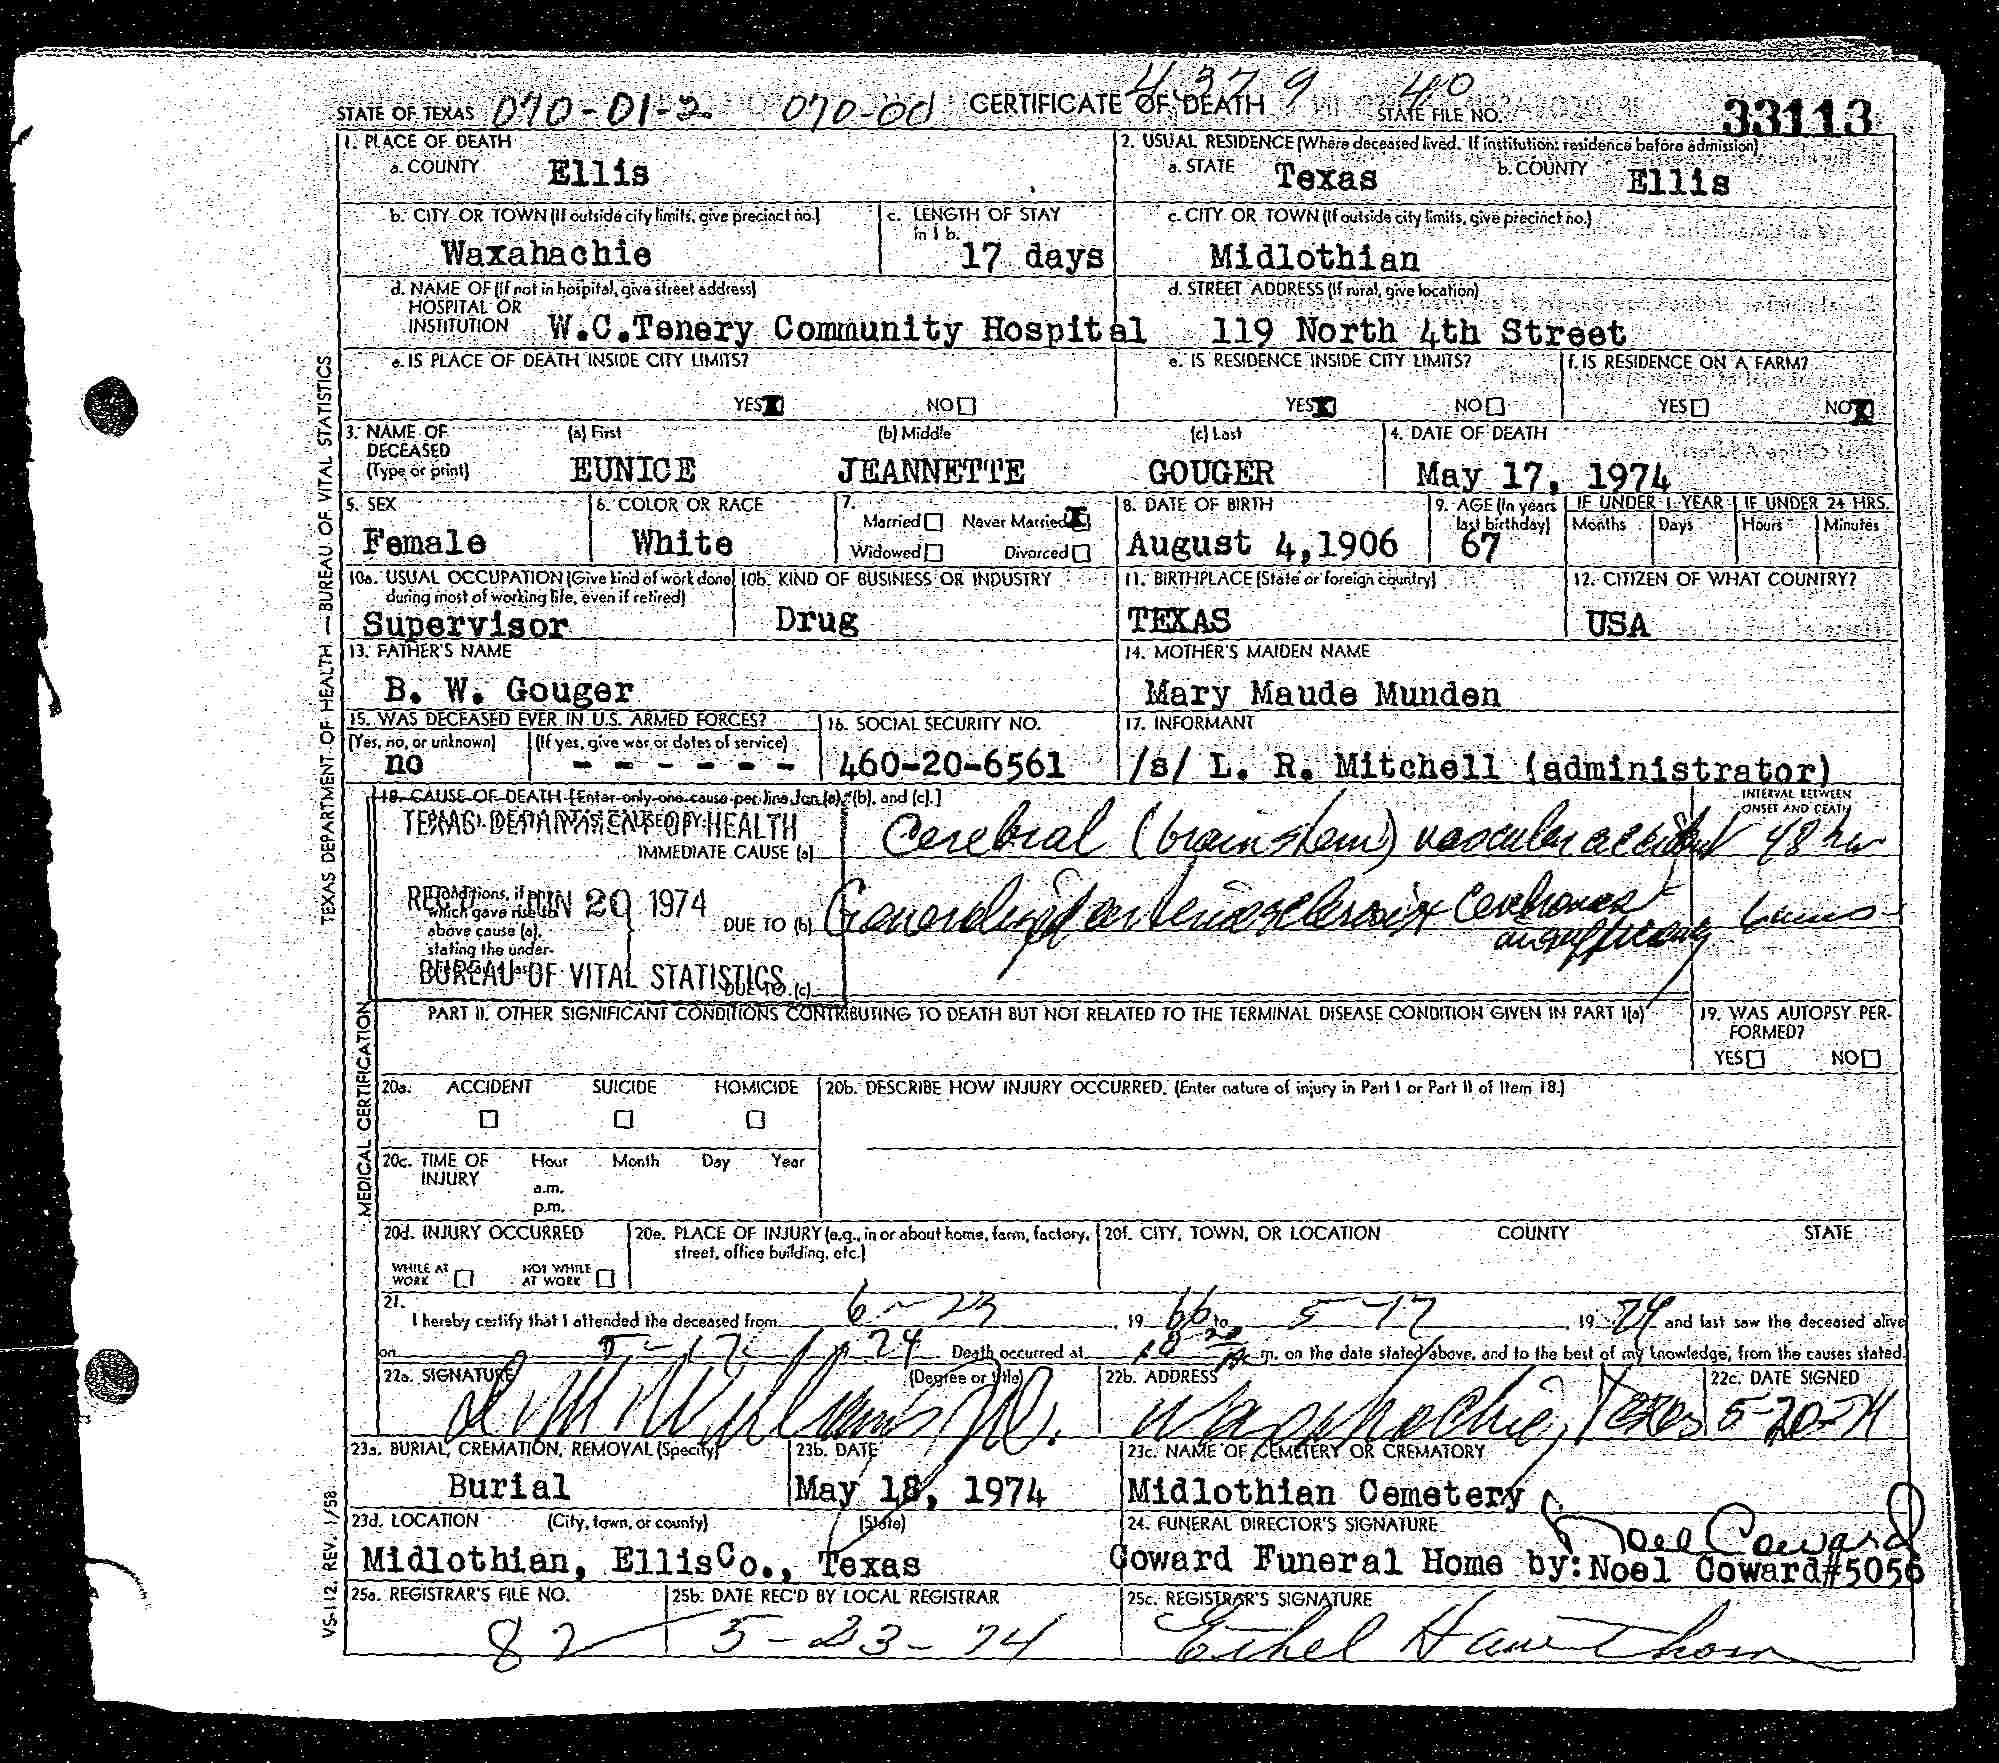 4379 40
STATE OF TEXAS 070-01-2 070-00 CERTIFICATE OF DEATH STATE FILE NO. 33113
1. PLACE OF DEATH
a. COUNTY Ellis
2. USUAL RESIDENCE (Where deceased lived. If institution: residence before admission)
a. STATE Texas b. COUNTY Ellis
b. CITY OR TOWN (If outside city limits, give precinct no.) c. LENGTH OF STAY in 1 b.
Waxahachie 17 days
c. CITY OR TOWN (If outside city limits, give precinct no.)
Midlothian
d. NAME OF (If not in hospital, give street address)
HOSPITAL OR
INSTITUTION W.C.Tenery Community Hospital
d. STREET ADDRESS (If rural, give location)
119 North 4th Street
e. IS PLACE OF DEATH INSIDE CITY LIMITS?
YES X NO
e. IS RESIDENCE INSIDE CITY LIMITS?
YES X NO
f. IS RESIDENCE ON A FARM?
YES NO X
3. NAME OF DECEASED (Type or print) (a) First (b) Middle (c) Last
EUNICE JEANNETTE GOUGER
4. DATE OF DEATH
May 17, 1974
5. SEX
Female
6. COLOR OR RACE
White
7. Married Never Married X
Widowed Divorced
8. DATE OF BIRTH
August 4,1906
9. AGE (In years last birthday)
67
IF UNDER 1 YEAR IF UNDER 24 HRS.
Months Days Hours Minutes
10a. USUAL OCCUPATION (Give kind of work done during most of working life, even if retired)
Supervisor
10b. KIND OF BUSINESS OR INDUSTRY
Drug
11. BIRTHPLACE (State or foreign country)
TEXAS
12. CITIZEN OF WHAT COUNTRY?
USA
13. FATHER'S NAME
B. W. Gouger
14. MOTHER'S MAIDEN NAME
Mary Maude Munden
15. WAS DECEASED EVER IN U.S. ARMED FORCES?
(Yes, no, or unknown) (If yes, give war or dates of service)
no - - - - - -
16. SOCIAL SECURITY NO.
460-20-6561
17. INFORMANT
/s/ L. R. Mitchell (administrator)
18. CAUSE OF DEATH [Enter only one cause per line for (a), (b), and (c).]
INTERVAL BETWEEN
ONSET AND DEATH
TEXAS DEPARTMENT OF HEALTH
IMMEDIATE CAUSE (a) Cerebral (brain stem) vascular accident 48 hrs
REC'D JUN 20 1974
Conditions, if any,
which gave rise to
above cause (a),
stating the under-
DUE TO (b) Generalized arteriosclerosis
insufficiency
BUREAU OF VITAL STATISTICS
DUE TO (c)
PART II. OTHER SIGNIFICANT CONDITIONS CONTRIBUTING TO DEATH BUT NOT RELATED TO THE TERMINAL DISEASE CONDITION GIVEN IN PART I(a)
19. WAS AUTOPSY PER-
FORMED?
YES NO
20a. ACCIDENT SUICIDE HOMICIDE
20b. DESCRIBE HOW INJURY OCCURRED. (Enter nature of injury in Part I or Part II of Item 18.)
20c. TIME OF INJURY Hour Month Day Year
a.m.
p.m.
20d. INJURY OCCURRED
WHILE AT WORK NOT WHILE AT WORK
20e. PLACE OF INJURY (e.g., in or about home, farm, factory, street, office building, etc.)
20f. CITY, TOWN, OR LOCATION COUNTY STATE
21.
I hereby certify that I attended the deceased from 6-23, 1966 to 5-17, 1974 and last saw the deceased alive
on 5-17 74 Death occurred at m. on the date stated above, and to the best of my knowledge, from the causes stated.
22a. SIGNATURE (Degree or title)
Williams
22b. ADDRESS
Waxahachie, Texas
22c. DATE SIGNED
5-20-74
23a. BURIAL, CREMATION, REMOVAL (Specify)
Burial
23b. DATE
May 18, 1974
23c. NAME OF CEMETERY OR CREMATORY
Midlothian Cemetery
23d. LOCATION (City, town, or county) (State)
Midlothian, Ellis Co., Texas
24. FUNERAL DIRECTOR'S SIGNATURE
Noel Coward
Coward Funeral Home by:Noel Coward#5056
25a. REGISTRAR'S FILE NO.
82
25b. DATE REC'D BY LOCAL REGISTRAR
5-23-74
25c. REGISTRAR'S SIGNATURE
Ethel Hawthorn
TEXAS DEPARTMENT OF HEALTH — BUREAU OF VITAL STATISTICS
MEDICAL CERTIFICATION
VS-112. REV. 1/58